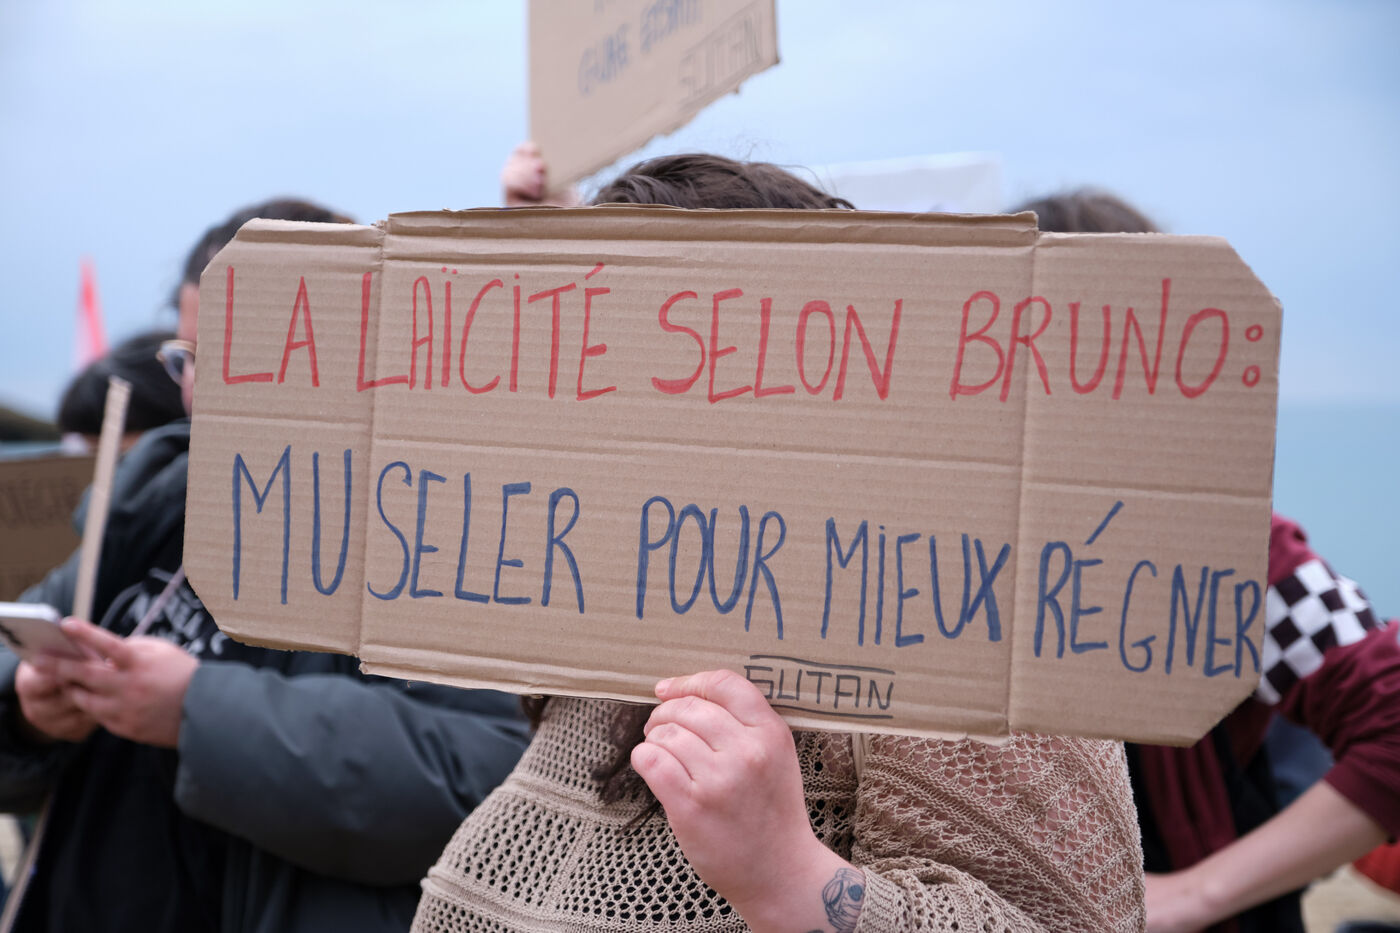 LA LAÏCITÉ SELON BRUNO:
MUSELER POUR MIEUX RÉGNER
GUTAN